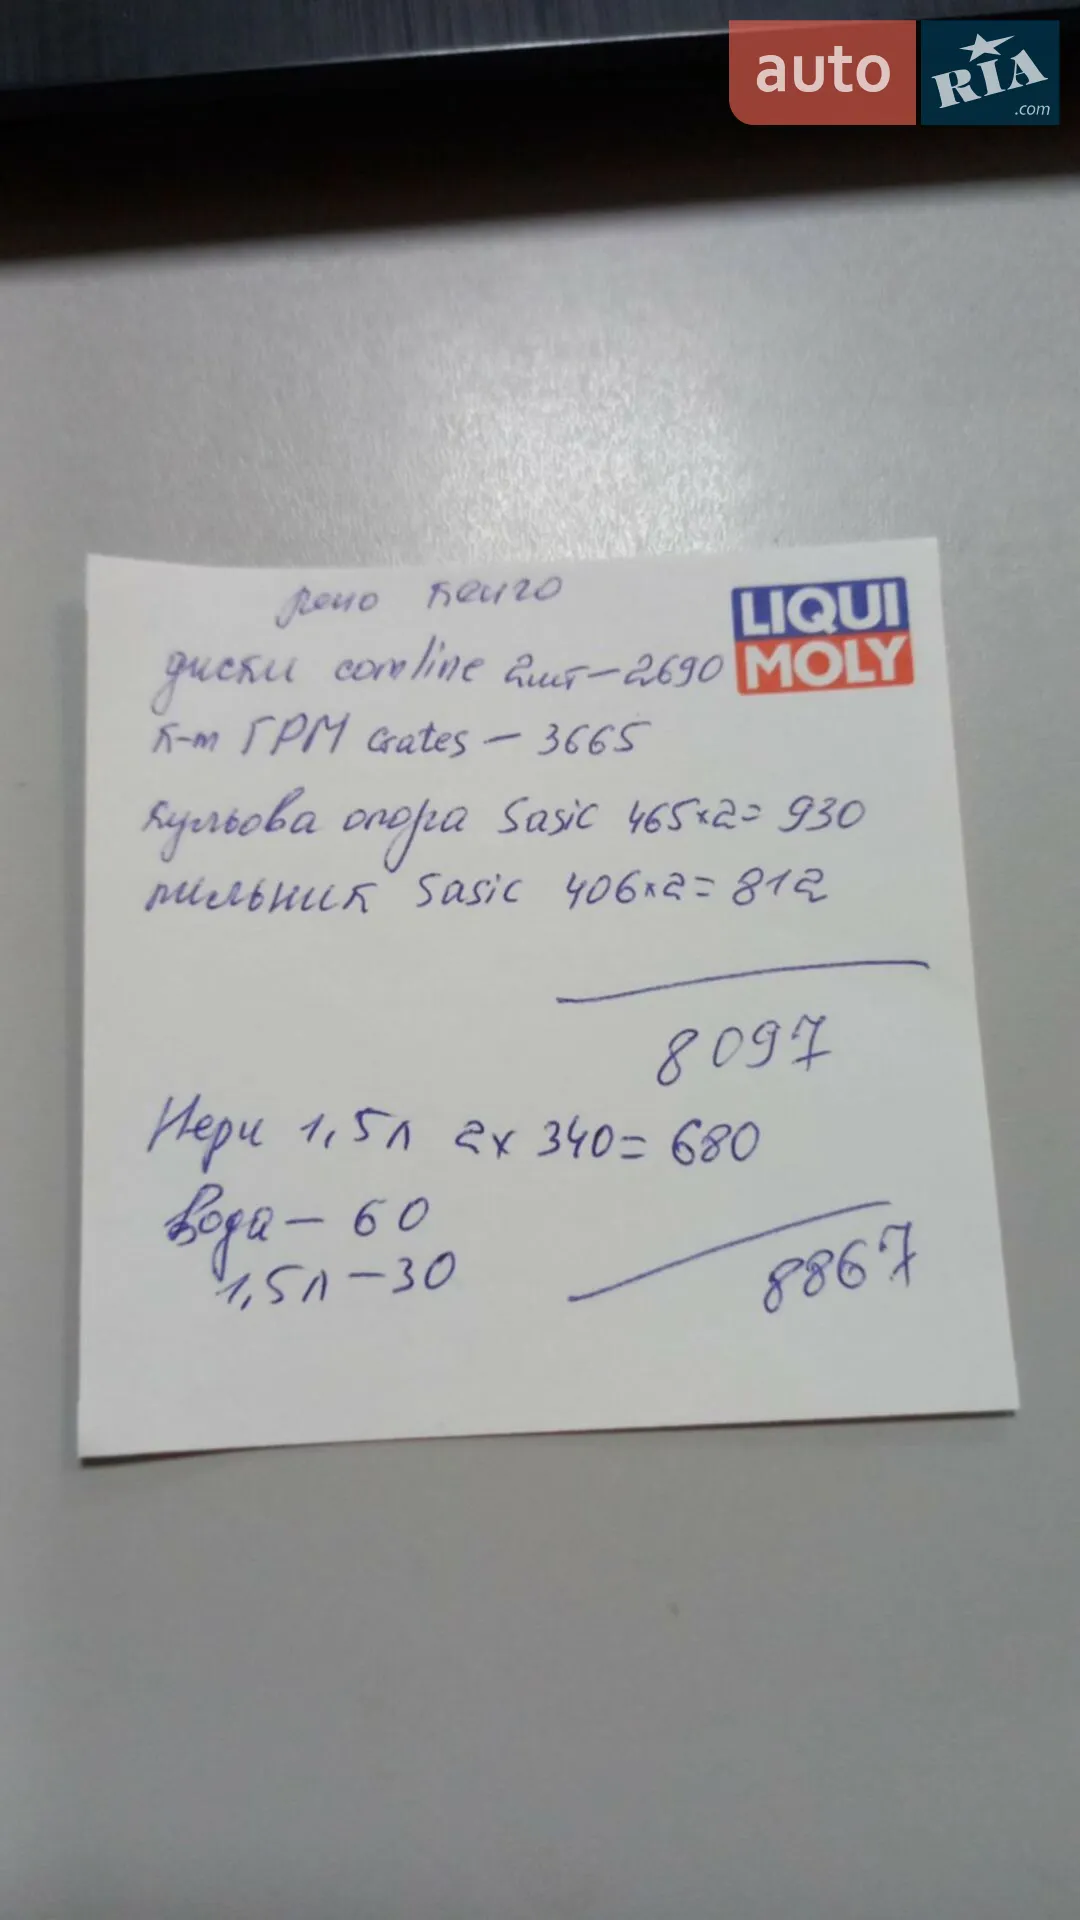 auto RIA .com
рено кенго
LIQUI MOLY
диски comline 2шт-2690
к-т ГРМ Gates - 3665
кульова опора Sasic 465×2= 930
пильник Sasic 406×2= 812
8097
1,5л 2х 340= 680
вода - 60
1,5л - 30
8867